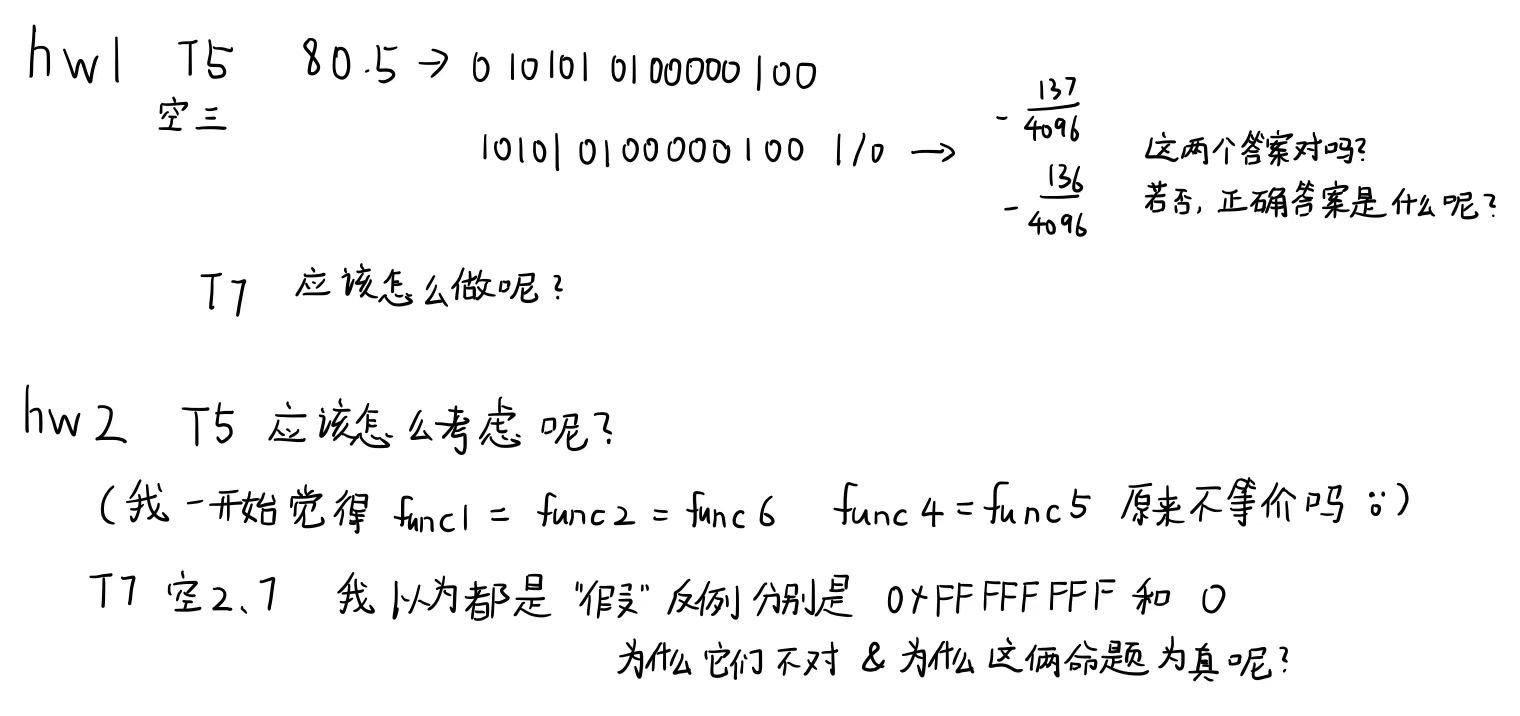 hw1 T5 80.5 → 0 10101 0100000100
空三
10101 0100000100 1/0 → - 137/4096
- 136/4096
这两个答案对吗?
若否, 正确答案是什么呢?
T7 应该怎么做呢?
hw2 T5 应该怎么考虑呢?
(我一开始觉得 func1 = func2 = func6 func4 = func5 原来不等价吗 )
T7 空2、7 我以为都是“假” 反例分别是 0xFFFFFFFF 和 0
为什么它们不对 & 为什么这俩命题为真呢?